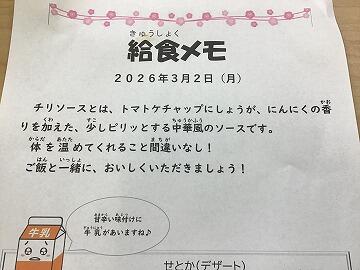 きゅうしょく
給食メモ
2026年3月2日（月）
チリソースとは、トマトケチャップにしょうが、にんにくの香
りを加えた、少しピリッとする中華風のソースです。
体を温めてくれること間違いなし！
ご飯と一緒に、おいしくいただきましょう！
甘辛い味付けに
牛乳があいますね♪
牛乳
せとか（デザート）